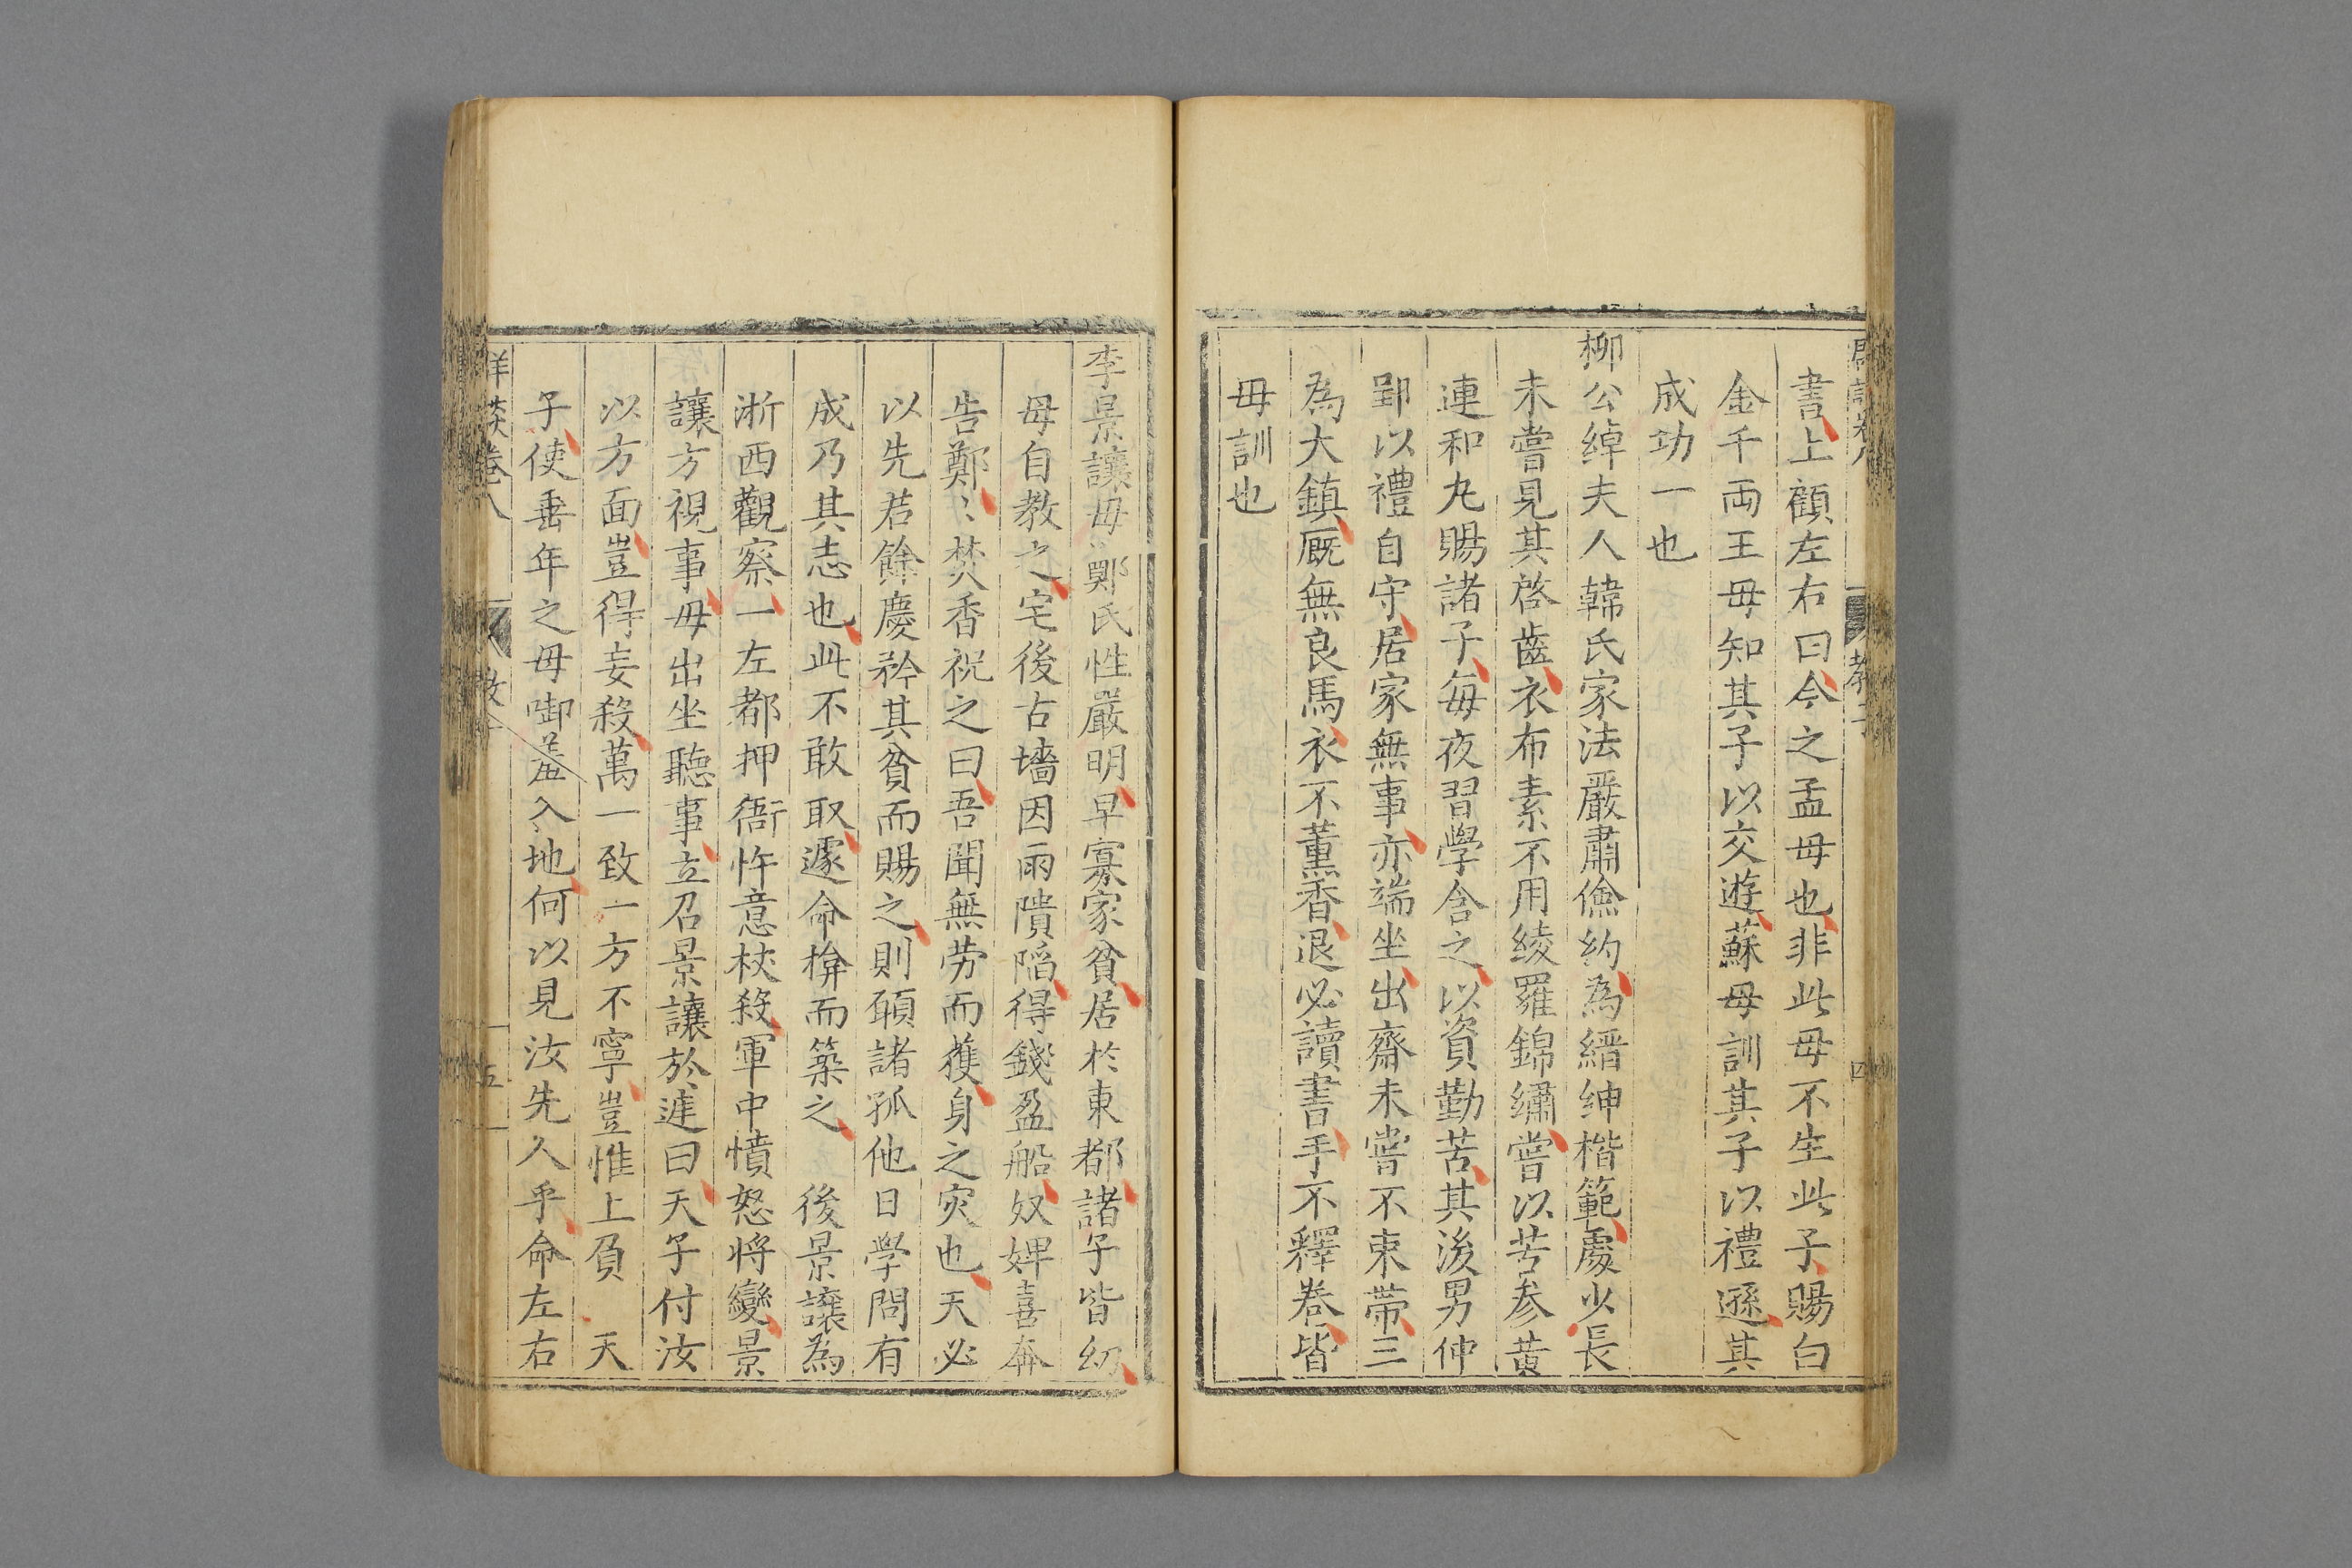 書上顧左右曰今之孟母也非此母不生此子賜白
金千両王母知其子以交遊蘇母訓其子以禮遜其
成功一也
柳公綽夫人韓氏家法嚴肅儉約為縉紳楷範處少長
未嘗見其啓齒衣布素不用綾羅錦繡嘗以苦参黄
連和丸賜諸子每夜習學含之以資勤苦其後男仲
郢以禮自守居家無事亦端坐出齋未嘗不束帶三
為大鎮厩無良馬衣不薰香退必讀書手不釋卷皆
母訓也
李景讓母鄭氏性嚴明早寡家貧居於東都諸子皆幼
母自教之宅後古墻因雨隤陷得錢盈船奴婢喜奔
告鄭〻焚香祝之曰吾聞無劳而獲身之灾也天必
以先君餘慶矜其貧而賜之則願諸孤他日學問有
成乃其志也此不敢取遽命掩而築之 後景讓為
浙西觀察一左都押衙忤意杖殺軍中憤怒将變景
讓方視事母出坐聽事立召景讓於廷曰天子付汝
以方面豈得妄殺萬一致一方不寧豈惟上負 天
子使垂年之母啣羞入地何以見汝先人乎命左右
卷八
五